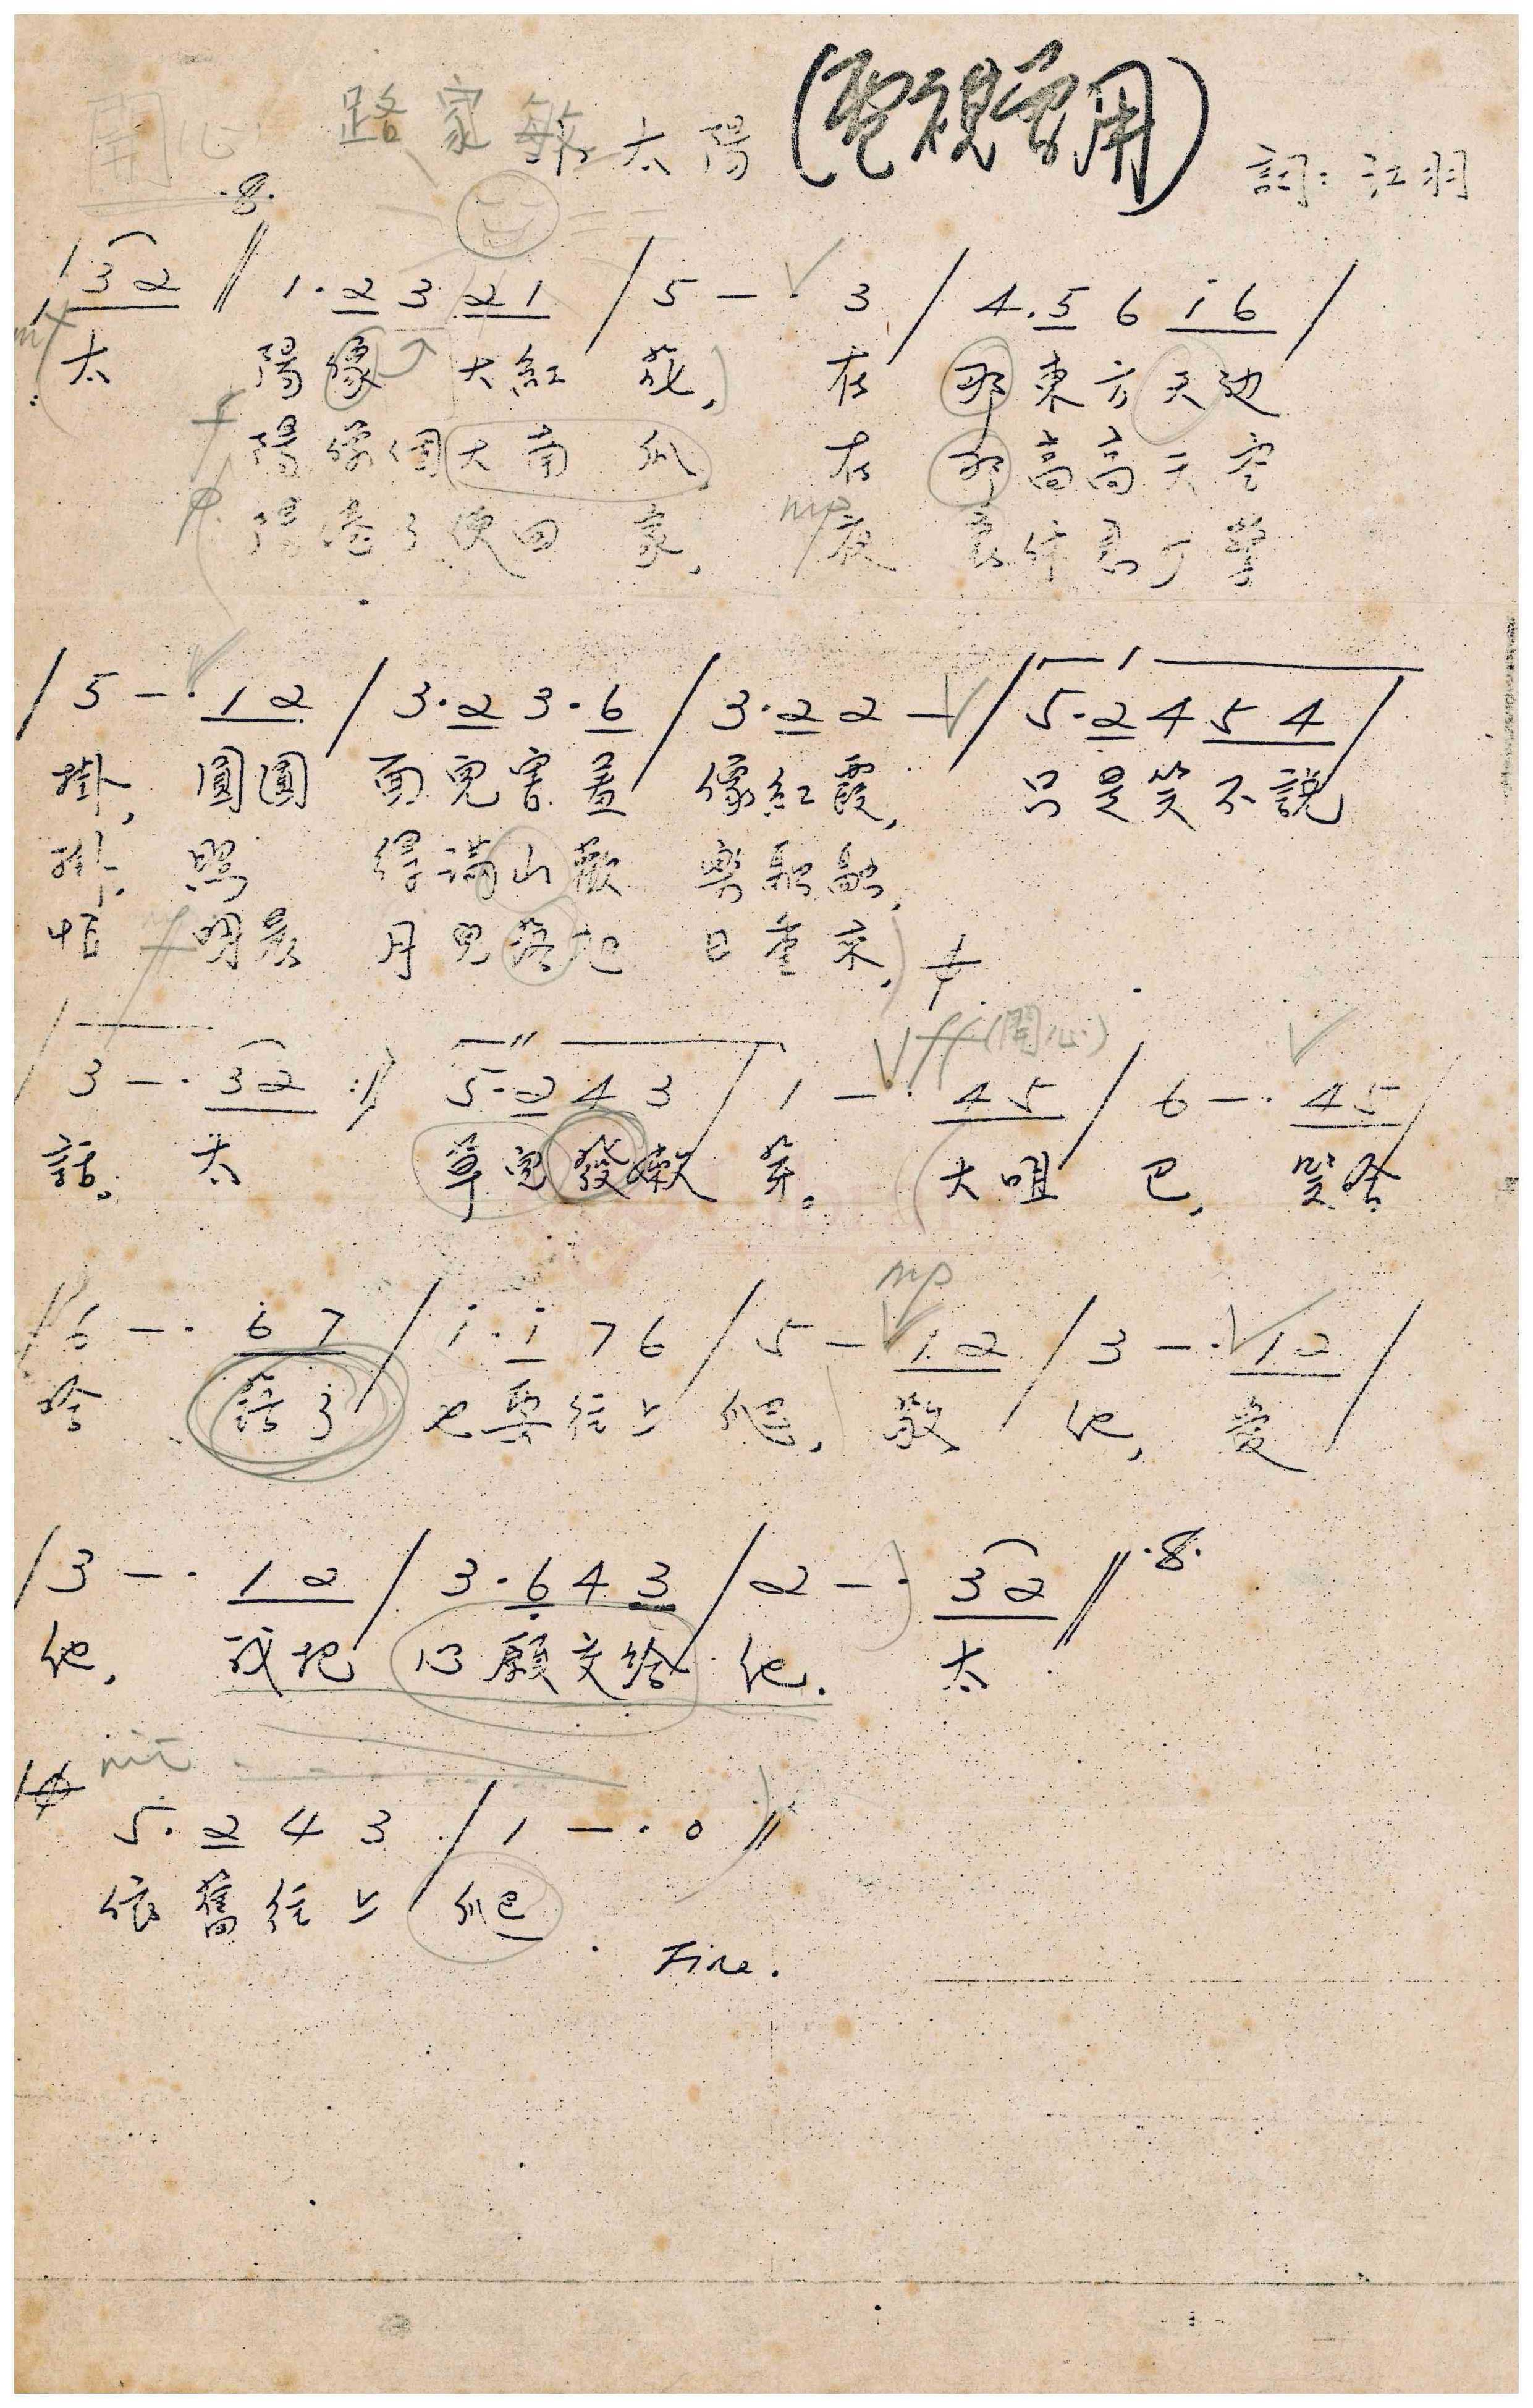 開心 路家敏 太陽 (電視曾用) 詞: 江羽
.8.
3 2 // 1·2 3 2 1 / 5 — · 3 / 4.5 6 i 6 /
mf 太 陽像 大紅 花, 在 那東方天边
f 陽像個大南 瓜, 在 那高高天空
陽倦了便回 家, mp 夜 裏休息了

/ 5 — · 1 2 / 3·2 3·6 / 3·2 2 — / 5·2 4 5 4 /
掛, 圓圓 面兒害羞 像紅霞, 只是笑不說
掛, 照 得滿山歡 樂融融,
明晨 月兒落 日重來,
/ 3 — · 3 2 :// 5·2 4 3 / 1 — · 4 5 / 6 — · 4 5 /
ff (開心)
話。 太 草兒發嫩 芽。 大咀 巴, 笑哈
mp
/ 6 — · 6 7 / i·i 7 6 / 5 — 1 2 / 3 — · 1 2 /
哈 踣了 也要往上 爬, 敬 他, 愛
/ 3 — · 1 2 / 3·6 4 3 / 2 — · 3 2 // .8.
他, 我把 心願交給 他. 太
rit
5·2 4 3 / 1 — · 0 //
依舊往上 爬
Fine.